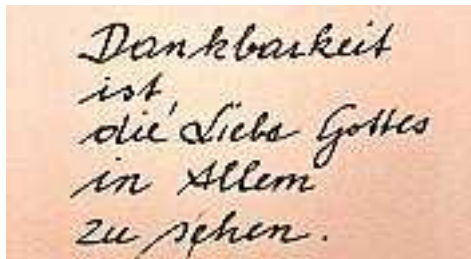 Dankbarkeit
ist,
die Liebe Gottes
in Allem
zu sehen.